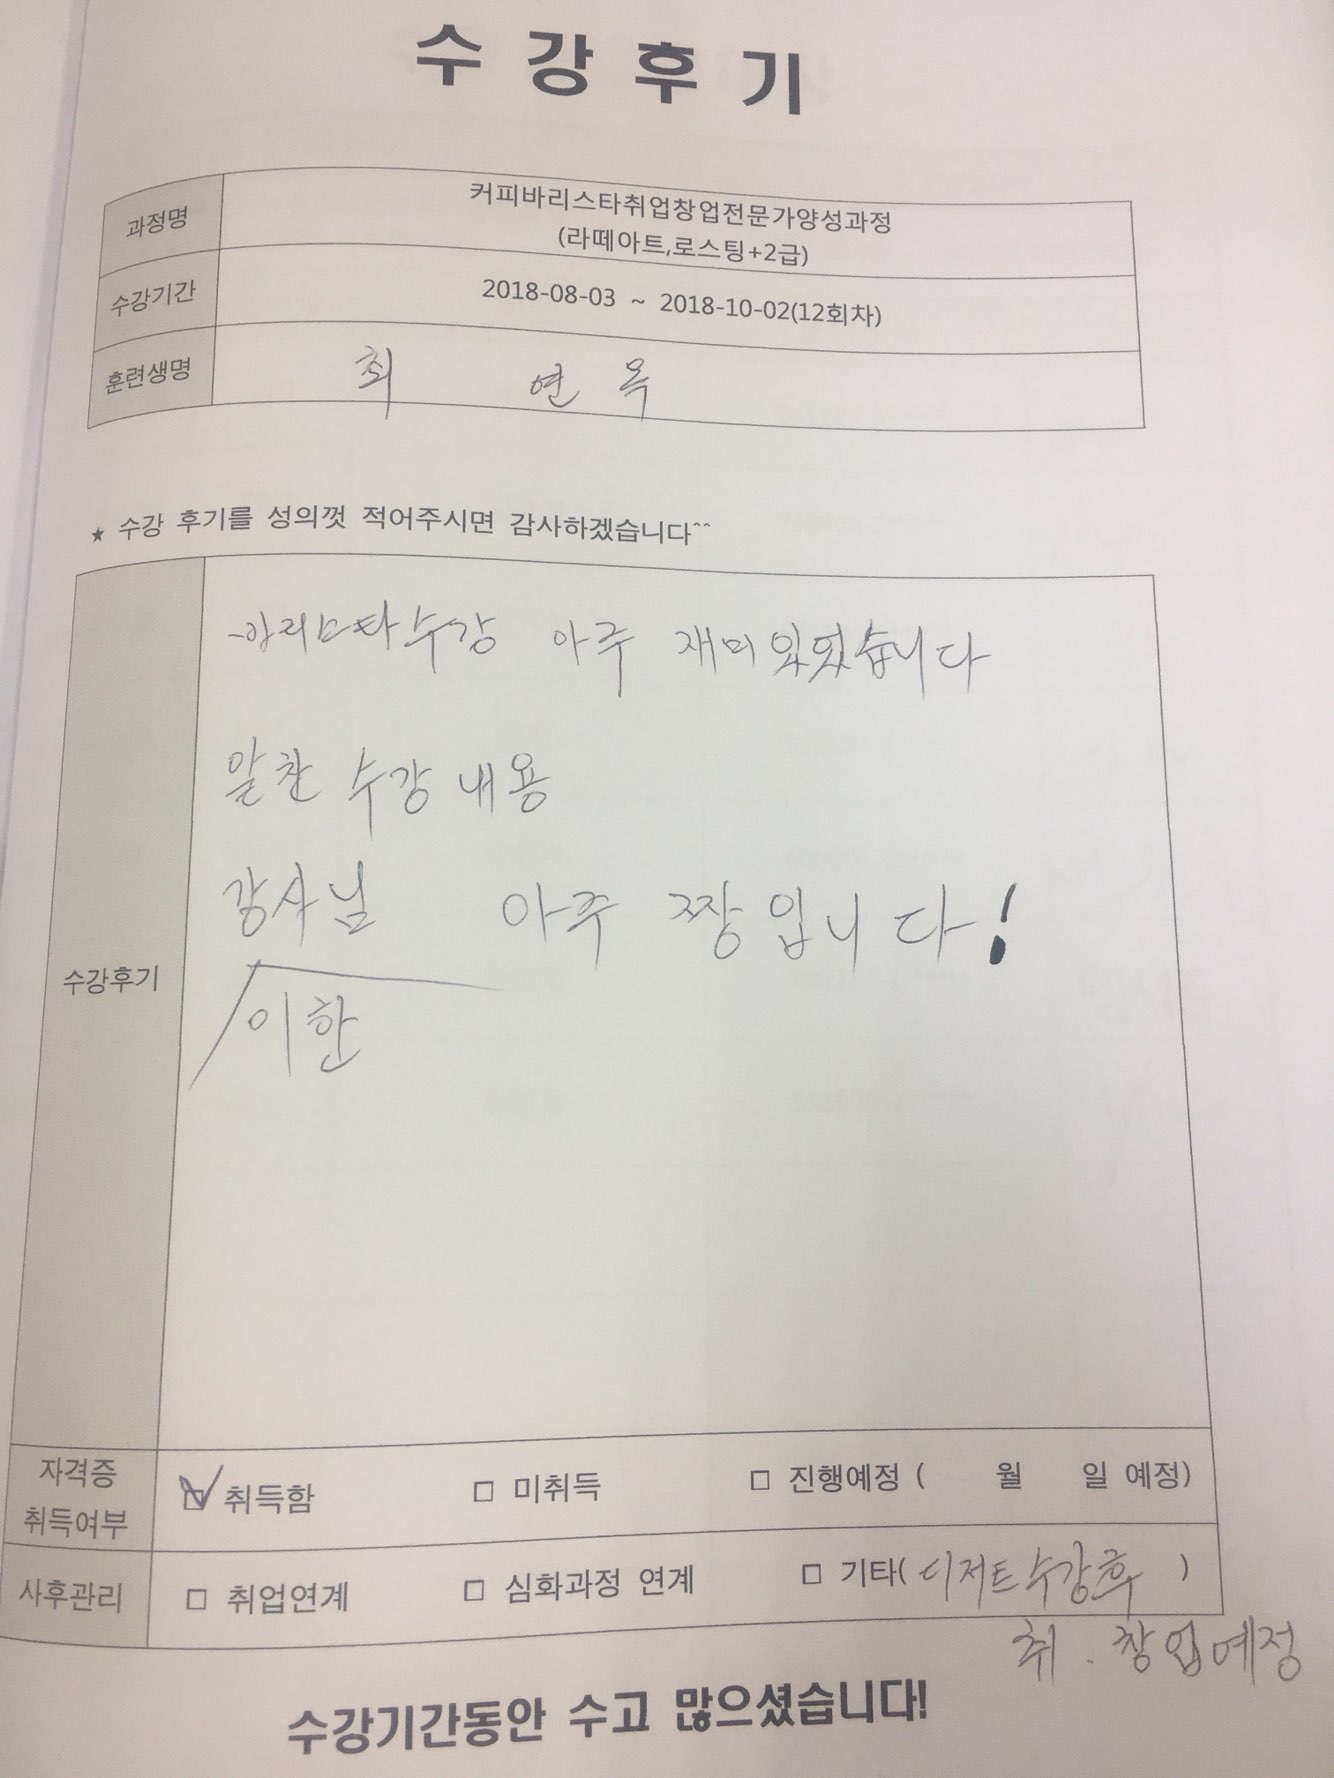 수 강 후 기
과정명
커피바리스타취업창업전문가양성과정
(라떼아트,로스팅+2급)
수강기간
2018-08-03 ~ 2018-10-02(12회차)
훈련생명
최 연 옥
★ 수강 후기를 성의껏 적어주시면 감사하겠습니다^^
수강후기
바리스타수강 아주 재미있었습니다
알찬 수강 내용
강사님 아주 짱입니다!
이한
자격증
취득여부
☑ 취득함 □ 미취득 □ 진행예정 ( 월 일 예정)
사후관리
□ 취업연계 □ 심화과정 연계 □ 기타( 디저트수강후 )
취 . 창업예정
수강기간동안 수고 많으셨습니다!